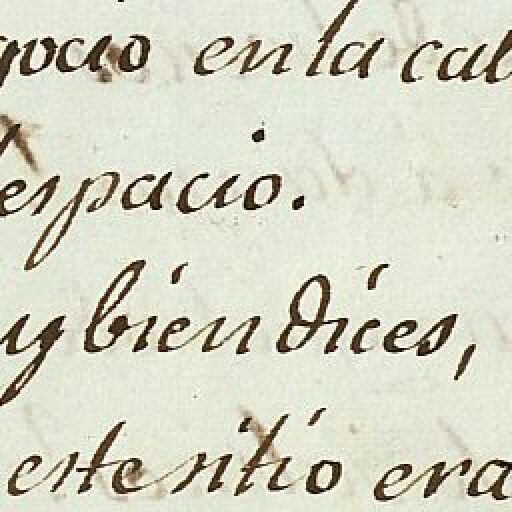 gocio en la cal
espacio.
uy bien dices,
este sitio era